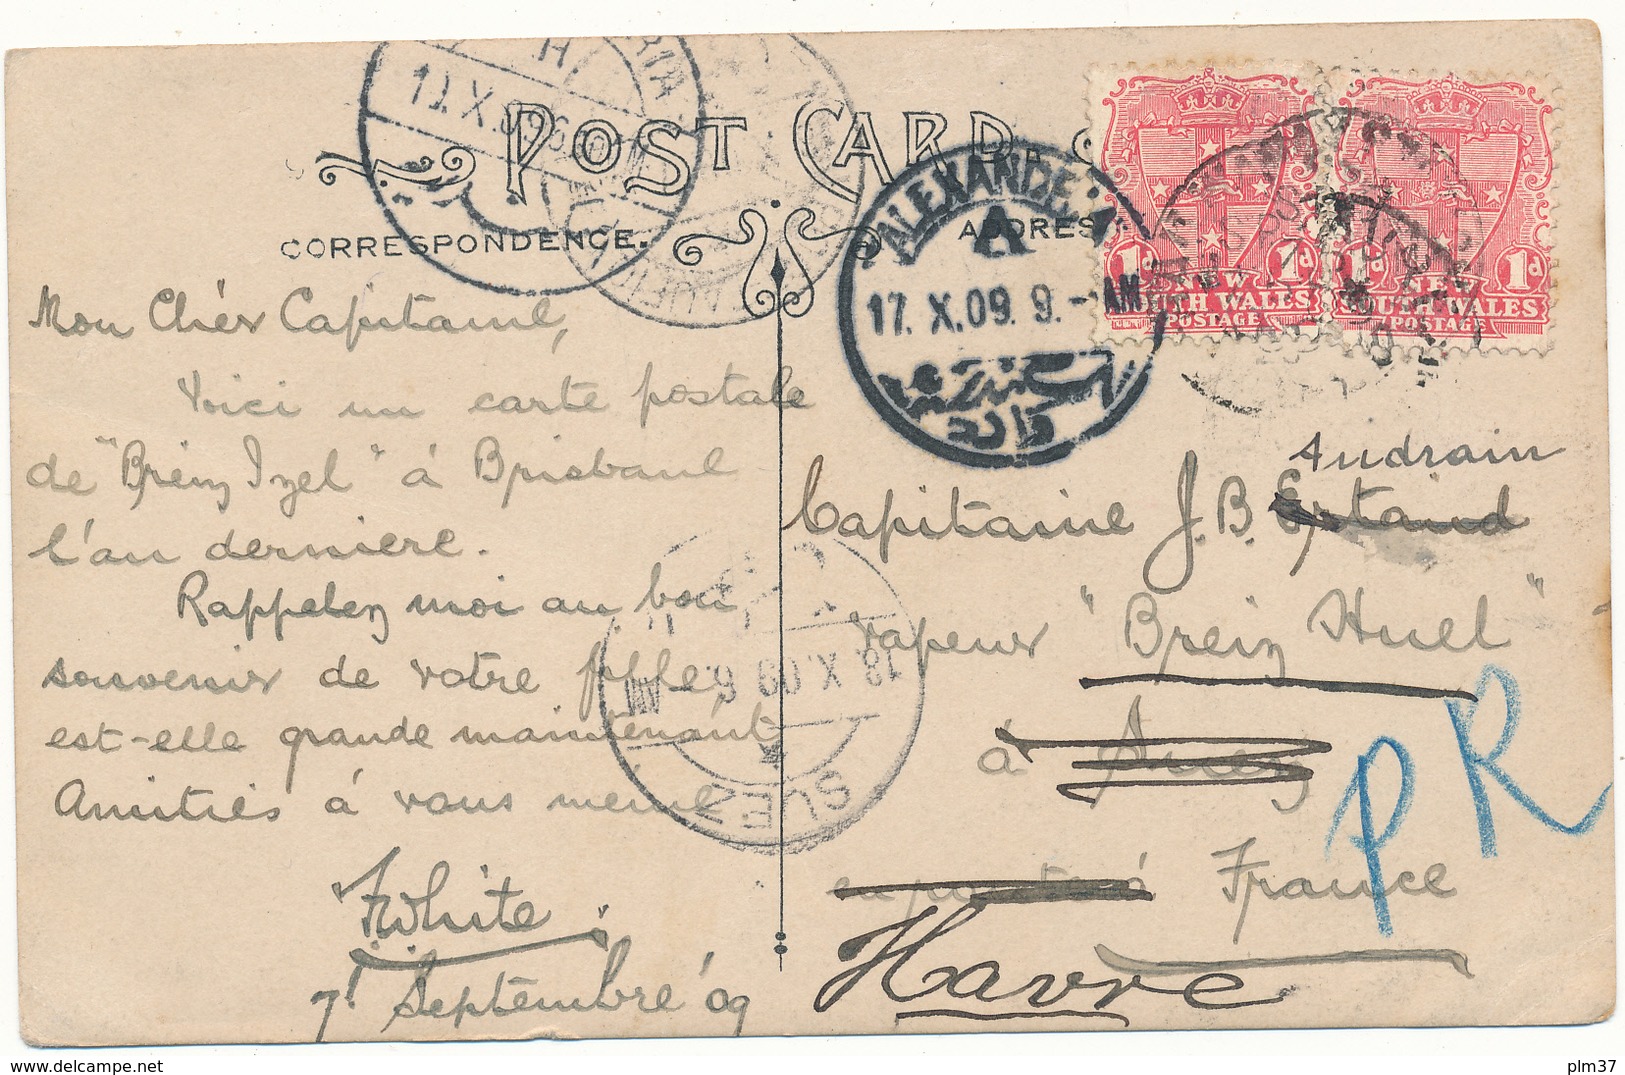 POST CARD
CORRESPONDENCE.
ADDRESS
ALEXANDRIA
A
17. X. 09. 9. - AM
NEW SOUTH WALES
POSTAGE
1d 1d
NEW SOUTH WALES
POSTAGE
1d 1d
Mon Chér Capitaine,
Voici un carte postale
de "Breiz Izel" á Brisbane
l'an derniere.
Rappelez moi au bon
souvenir de votre
est-elle grande maintenant
Amitiés á vous meme
White
7t Septembre 09
18. X. 09
SUEZ
Andrain
Capitaine J. B.
vapeur "Breiz Huel"
á Suez
France
Havre
PR
plm37